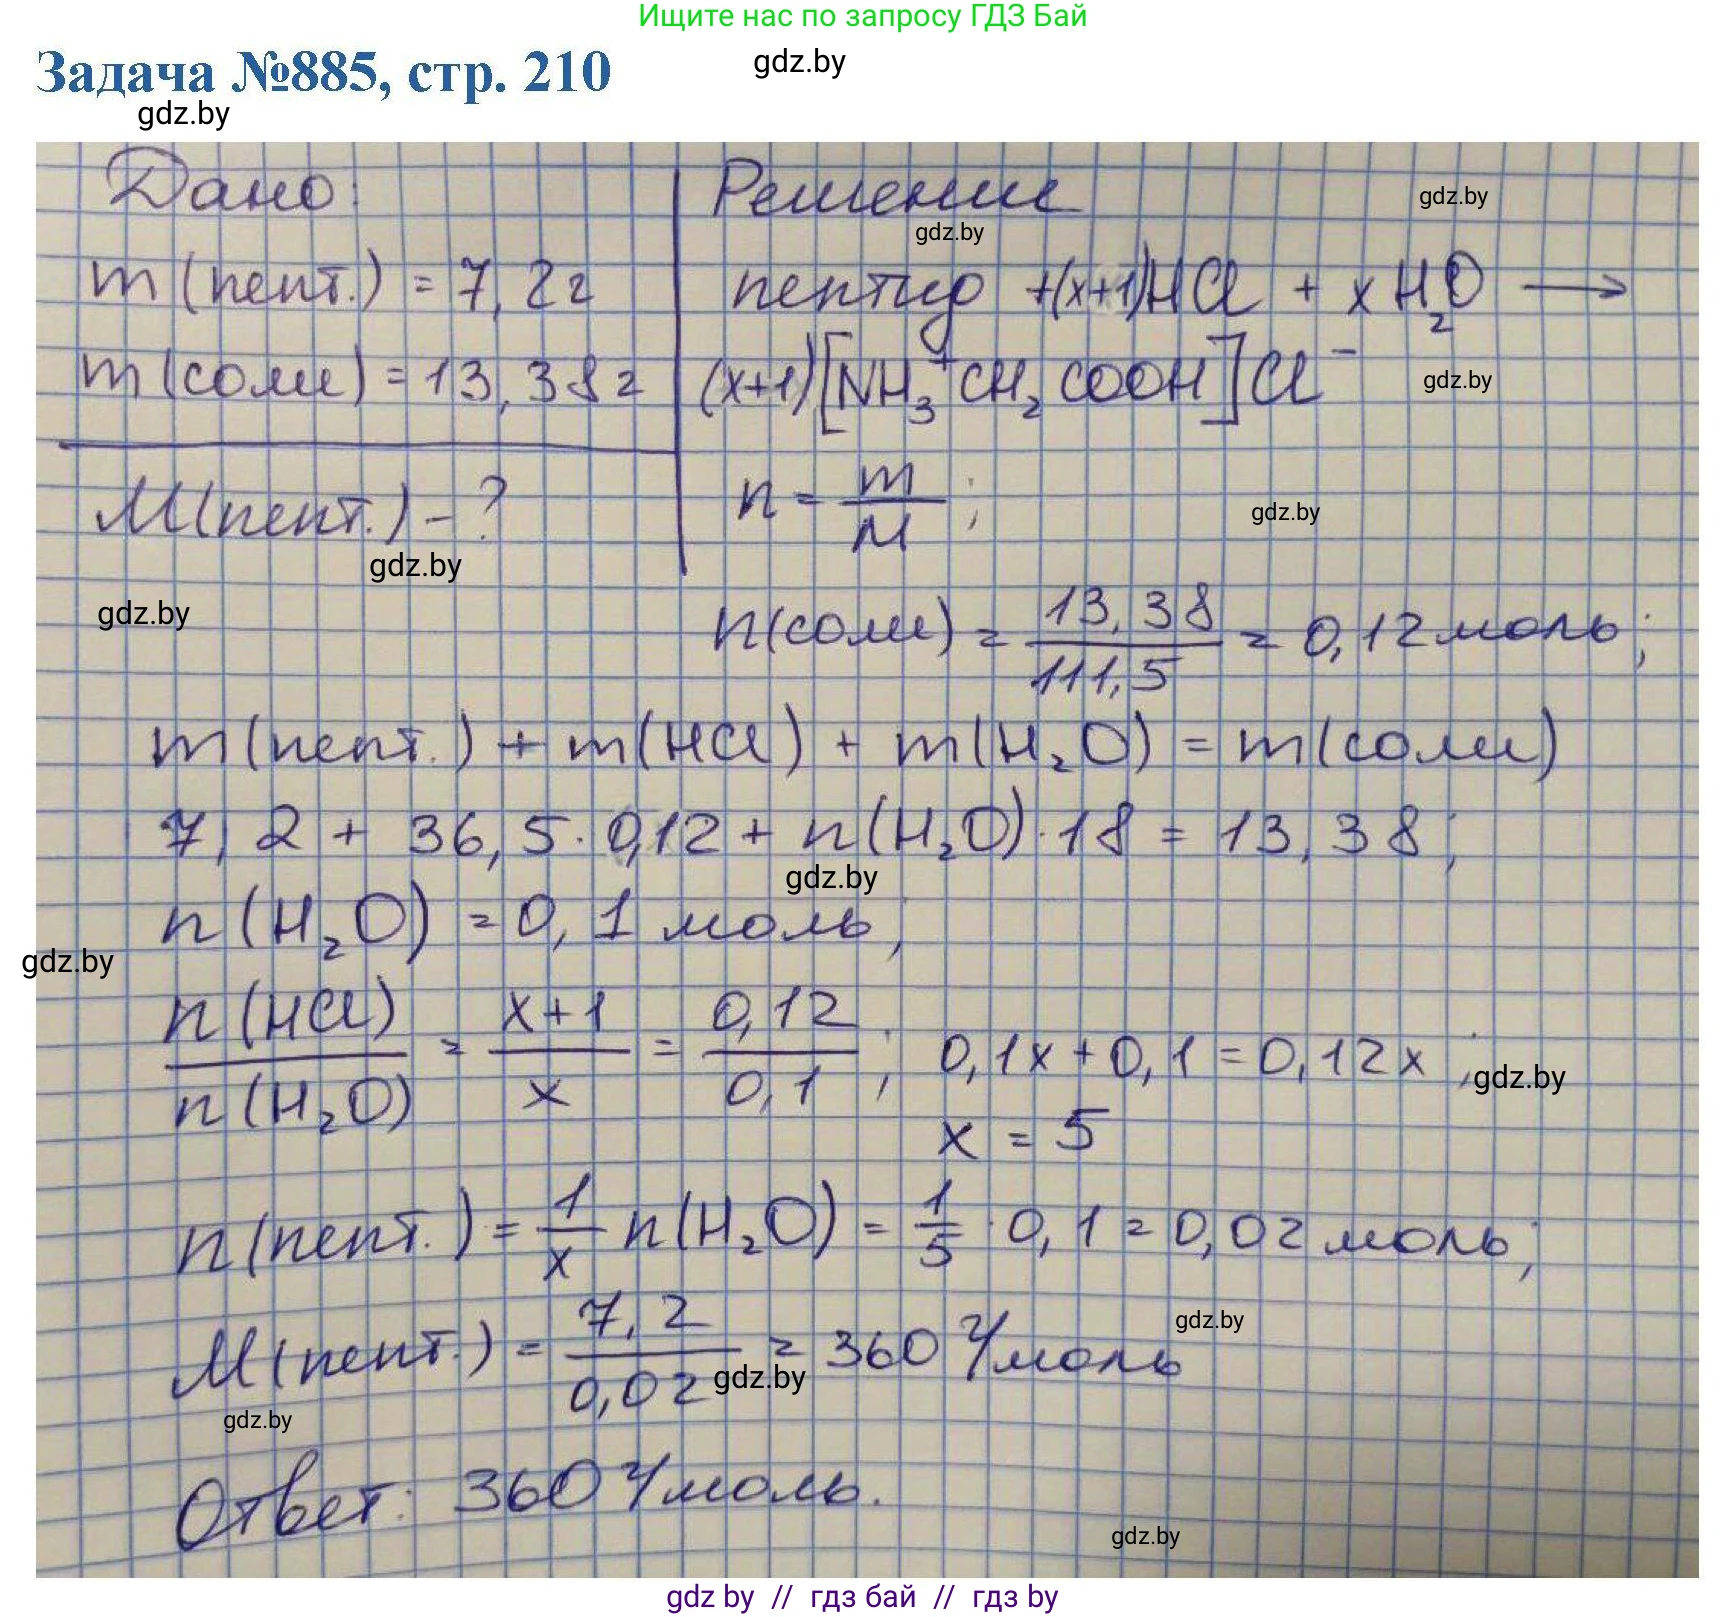 Ищите нас по запросу ГДЗ Бай
Задача №885, стр. 210
gdz.by
gdz.by
Дано:
m (пепт.) = 7,2 г
m (соли) = 13,38 г
M (пепт.) - ?
gdz.by
gdz.by
Решение
gdz.by
gdz.by
пептид +(x+1)HCl + xH₂O →
(x+1)[NH₃⁺CH₂COOH]Cl⁻
gdz.by
n = m/M;
gdz.by
n(соли) = 13,38/111,5 = 0,12 моль;
m (пепт.) + m(HCl) + m(H₂O) = m(соли)
7,2 + 36,5·0,12 + n(H₂O)·18 = 13,38;
gdz.by
n(H₂O) = 0,1 моль;
gdz.by
n(HCl)/n(H₂O) = (x+1)/x = 0,12/0,1; 0,1x + 0,1 = 0,12x;
gdz.by
x = 5
n(пепт.) = 1/x n(H₂O) = 1/5 · 0,1 = 0,02 моль;
gdz.by
M(пепт.) = 7,2/0,02 = 360 г/моль
gdz.by
gdz.by
Ответ: 360 г/моль.
gdz.by
gdz by // гдз бай // гдз by